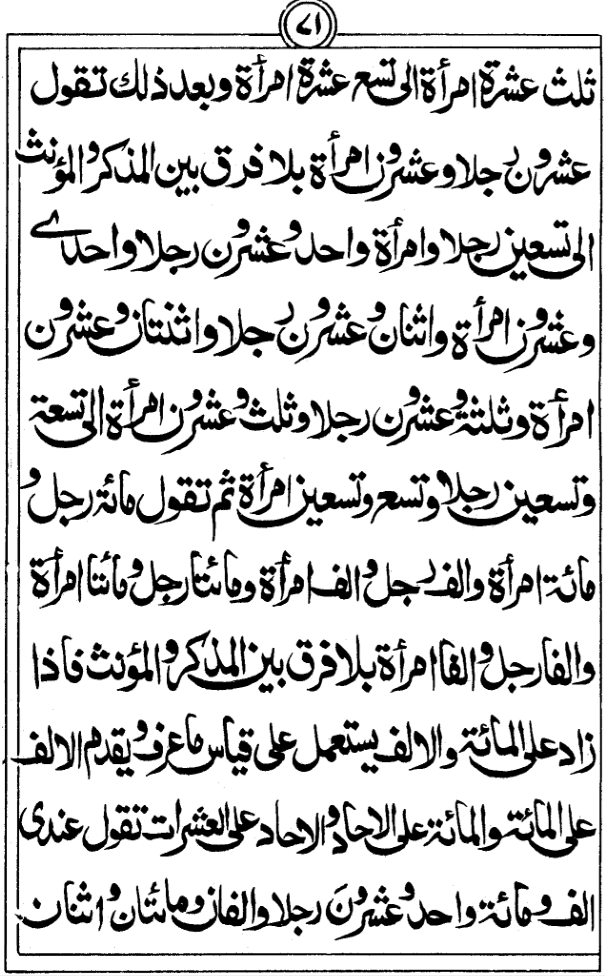 ٧١
ثلث عشرة امرأة الى تسع عشرة امرأة وبعد ذلك تقول
عشرون رجلا وعشرون امرأة بلا فرق بين المذكر والمؤنث
الى تسعين رجلا وامرأة واحد وعشرون رجلا واحدى
وعشرون امرأة واثنان وعشرون رجلا واثنتان وعشرون
امرأة وثلثة وعشرون رجلا وثلث وعشرون امرأة الى تسعة
وتسعين رجلا وتسع وتسعين امرأة ثم تقول مائة رجل و
مائة امرأة والف رجل والف امرأة ومائتا رجل ومائتا امرأة
والفا رجل والفا امرأة بلا فرق بين المذكر والمؤنث فاذا
زاد على المائة والالف يستعمل على قياس ما عرف ويقدم الالف
على المائة والمائة على الاحاد والاحاد على العشرات تقول عندى
الف ومائة واحد وعشرونَ رجلا والفان ومائتان واثنان